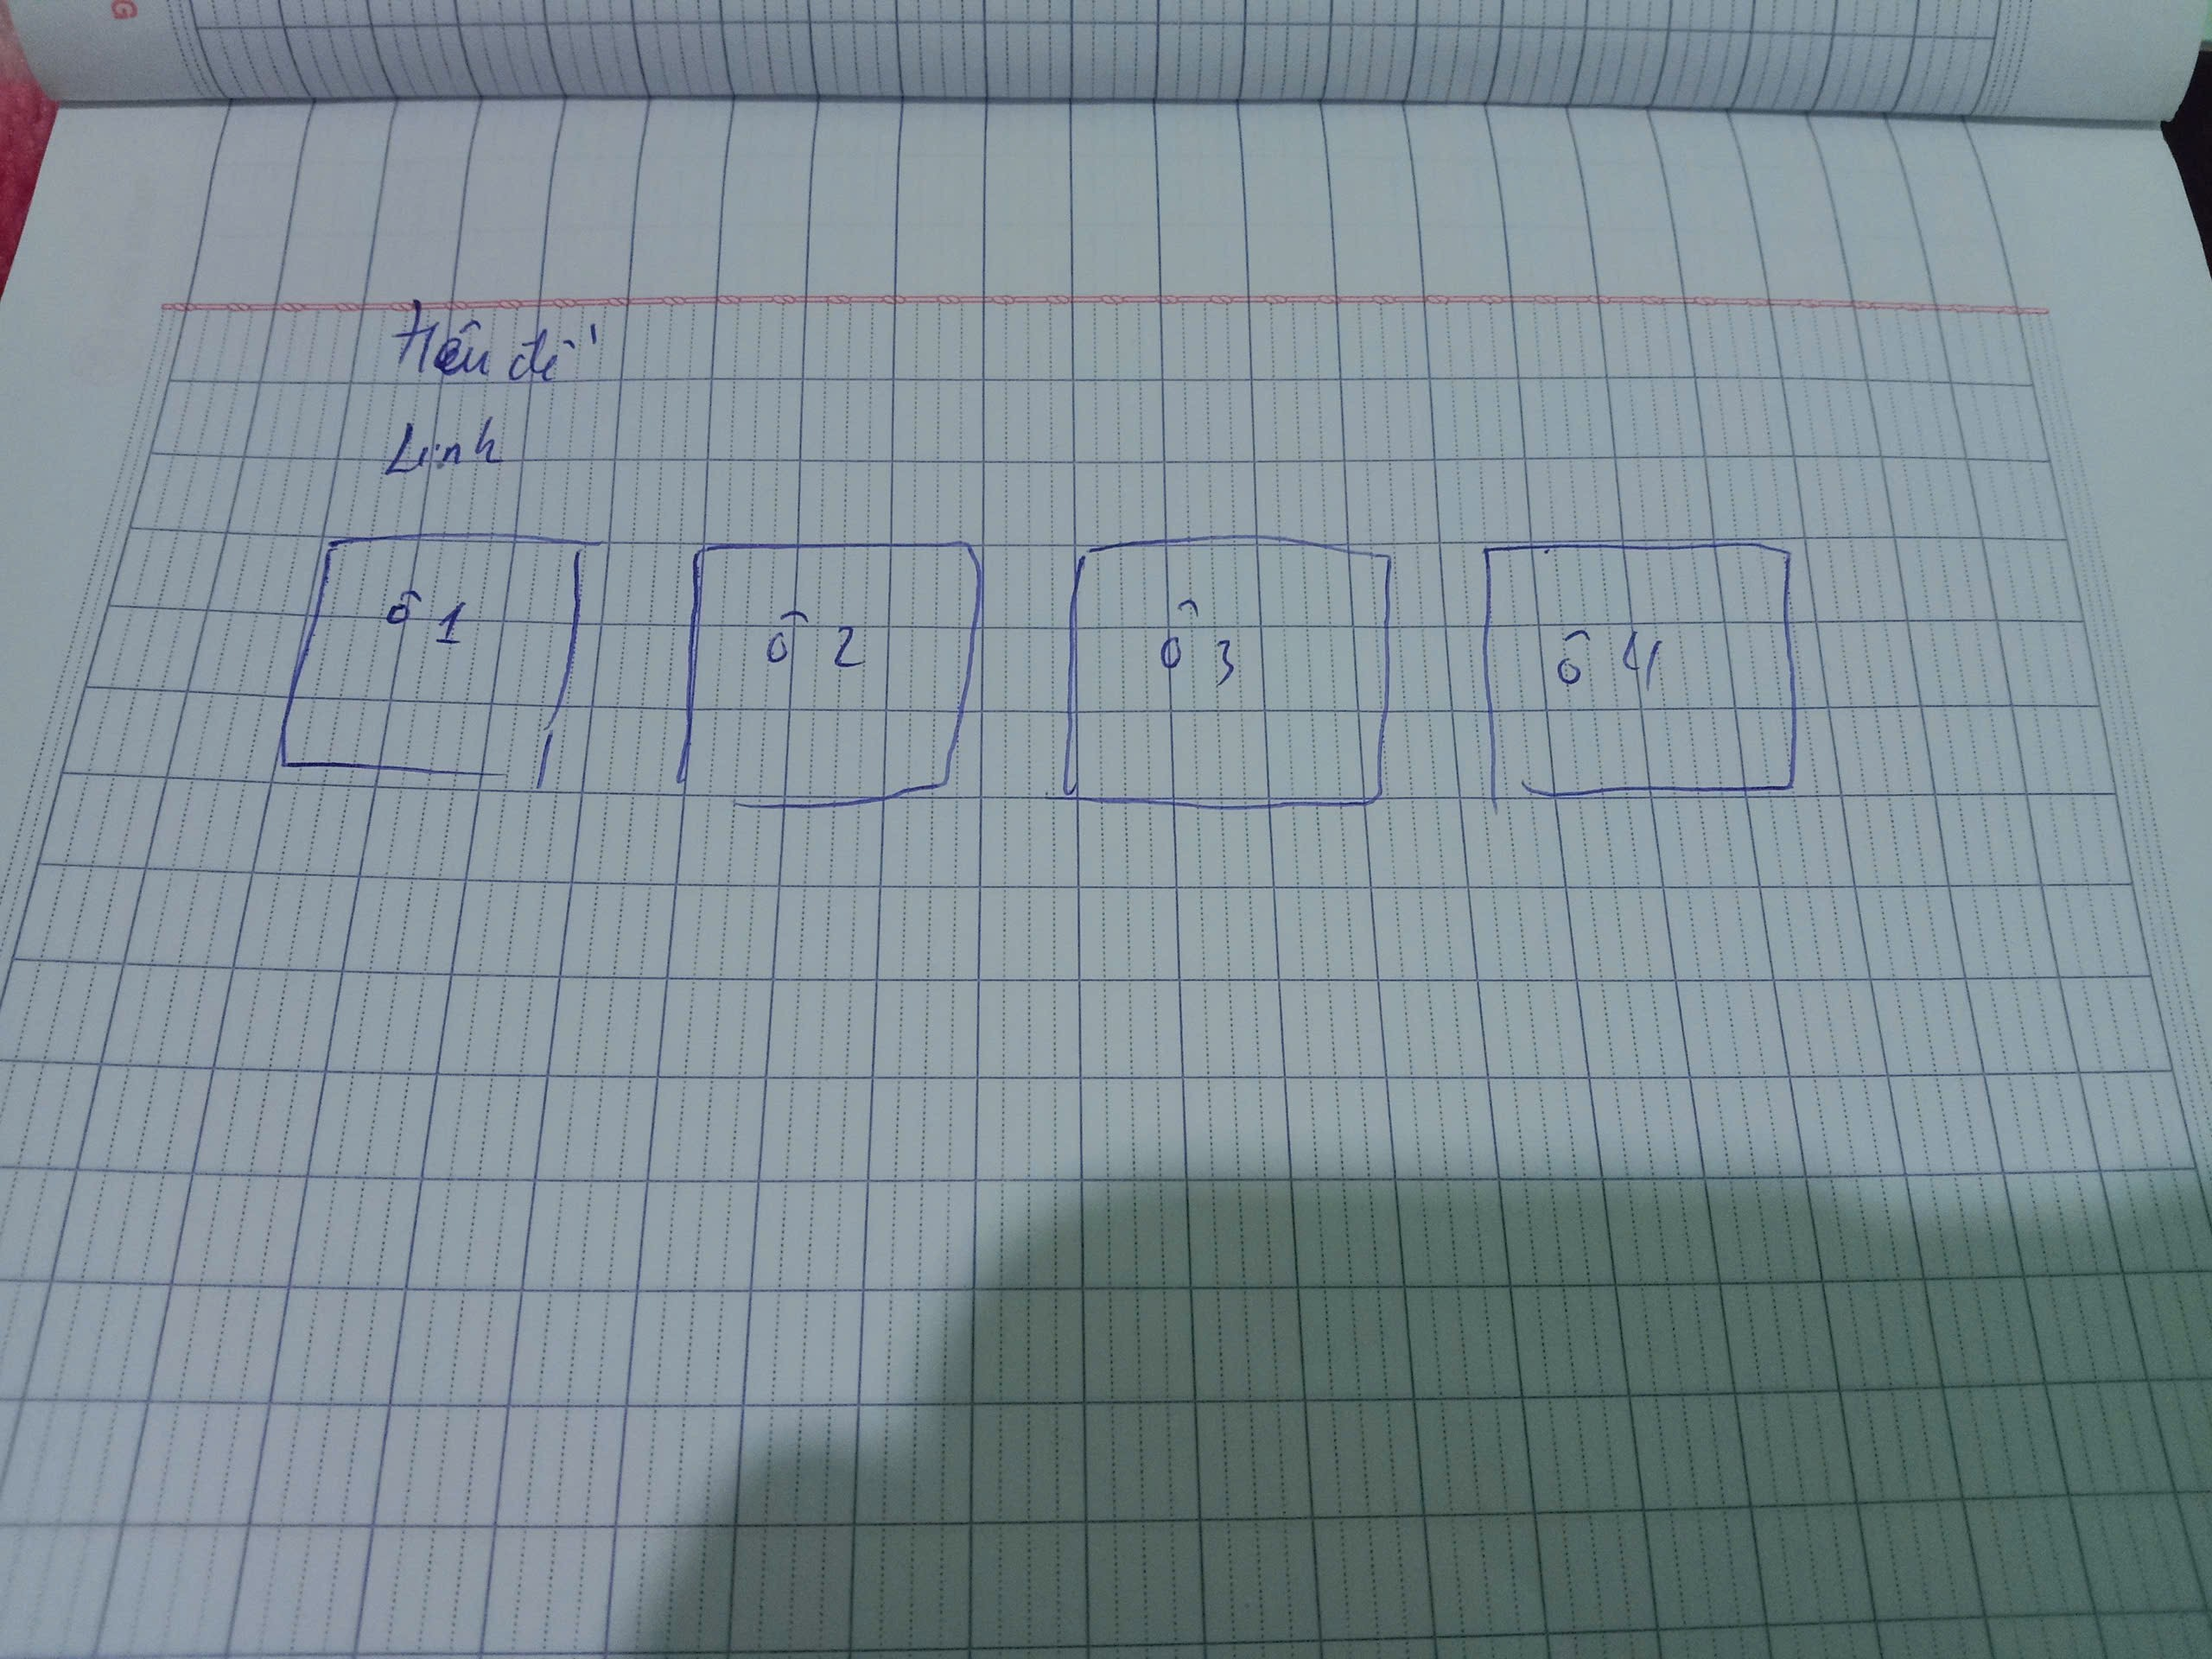 Tiêu đề
Linh
ô 1 ô 2 ô 3 ô 4